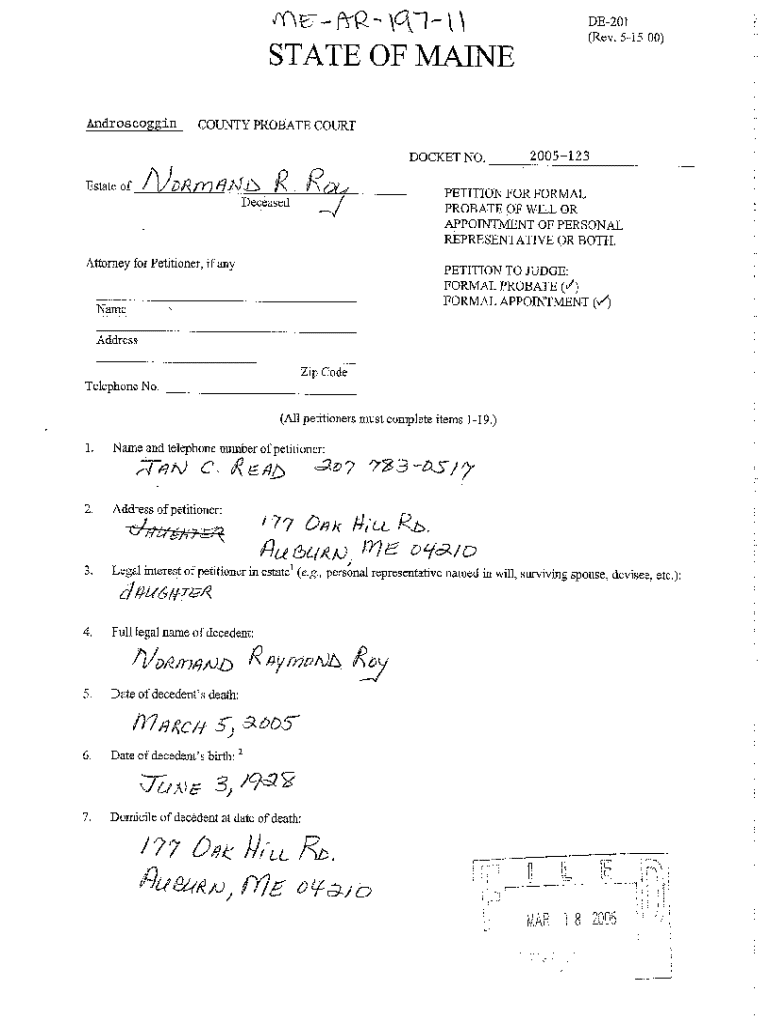 ME-AR-197-11
DE-201
(Rev. 5-15 00)
STATE OF MAINE
Androscoggin COUNTY PROBATE COURT
DOCKET NO. 2005-123
Estate of NORMAND R. ROY
Deceased
PETITION FOR FORMAL
PROBATE OF WILL OR
APPOINTMENT OF PERSONAL
REPRESENTATIVE OR BOTH.
Attorney for Petitioner, if any
PETITION TO JUDGE:
FORMAL PROBATE (✓)
FORMAL APPOINTMENT (✓)
Name
Address
Zip Code
Telephone No.
(All petitioners must complete items 1-19.)
1. Name and telephone number of petitioner:
JAN C. READ 207 783-0517
2. Address of petitioner:
DAUGHTER 177 OAK HILL RD.
AUBURN, ME 04210
3. Legal interest of petitioner in estate¹ (e.g., personal representative named in will, surviving spouse, devisee, etc.):
DAUGHTER
4. Full legal name of decedent:
NORMAND RAYMOND ROY
5. Date of decedent's death:
MARCH 5, 2005
6. Date of decedent's birth: ²
JUNE 3, 1928
7. Domicile of decedent at date of death:
177 OAK HILL RD.
AUBURN, ME 04210
FILED
MAR 18 2005